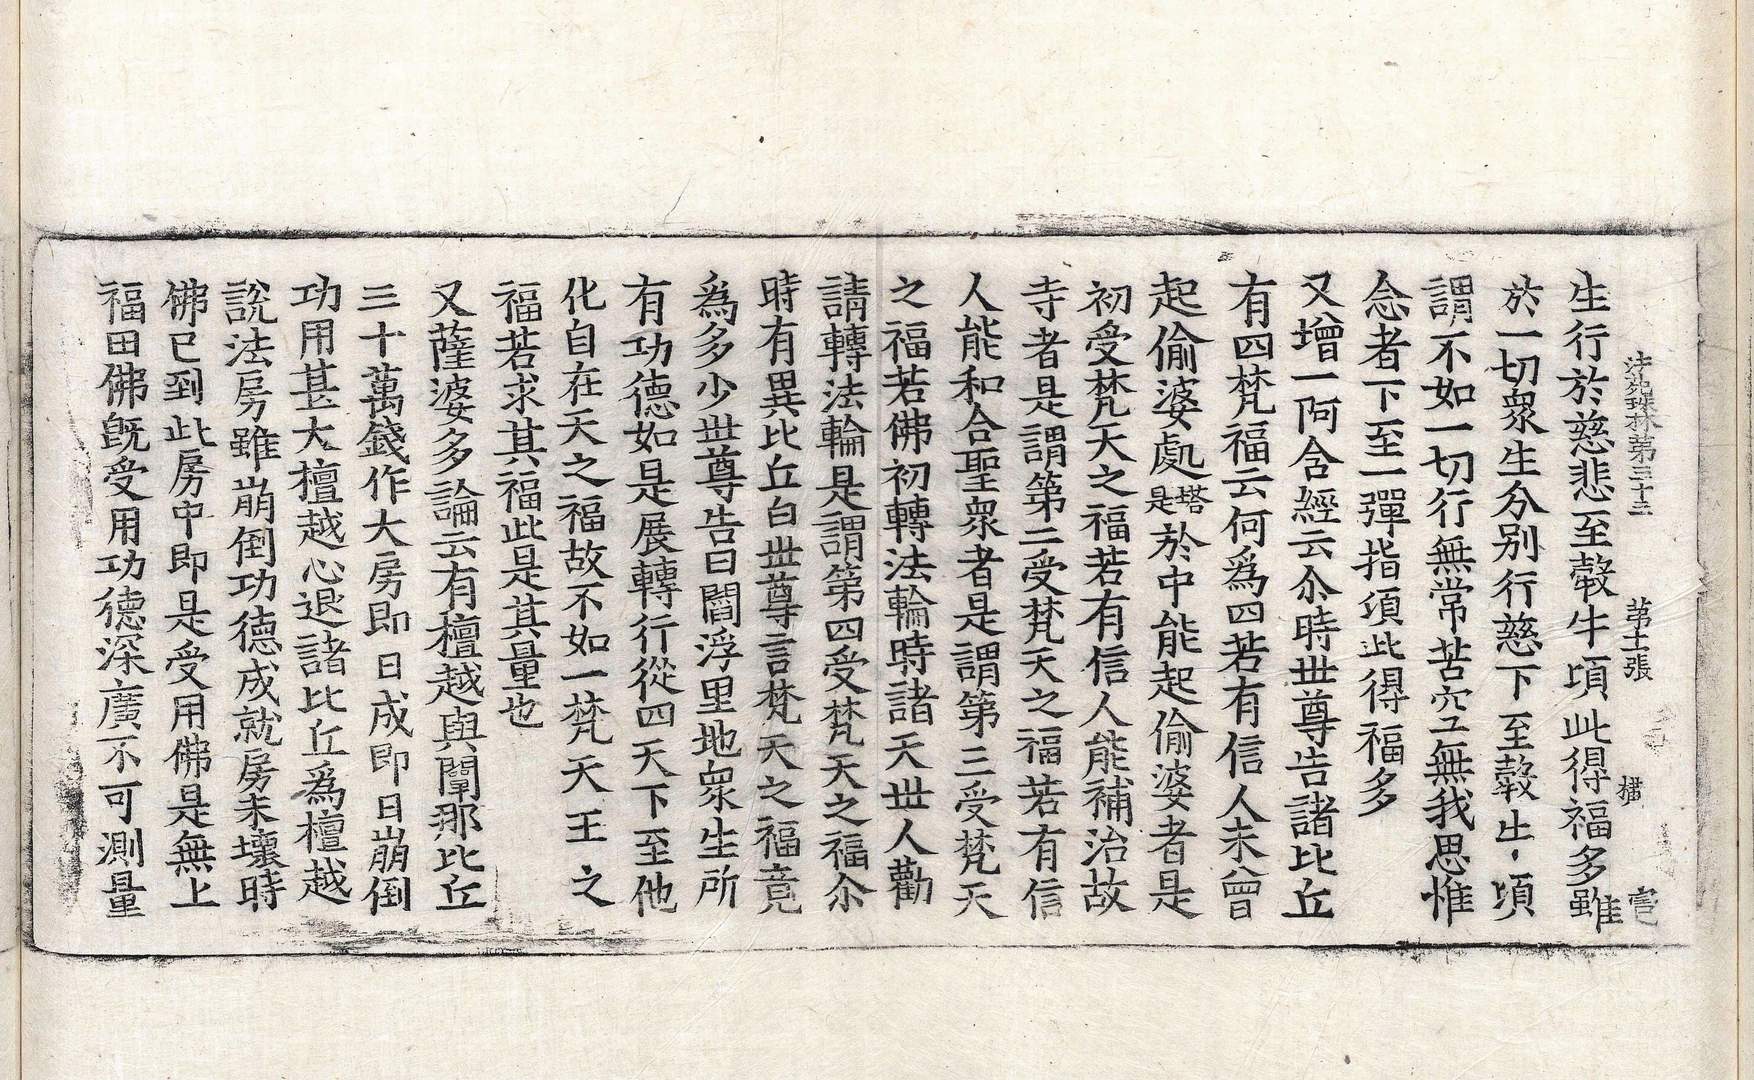 法苑珠林第三十三　第十二張　橫
生行於慈悲至𤛗牛頃此得福多雖
於一切衆生分別行慈下至𤛗牛頃
謂不如一切行無常苦空無我思惟
念者下至一彈指頃此得福多
又增一阿含經云尒時世尊告諸比丘
有四梵福云何爲四若有信人未曾
起偷婆處是塔於中能起偷婆者是
初受梵天之福若有信人能補治故
寺者是謂第二受梵天之福若有信
人能和合聖衆者是謂第三受梵天
之福若佛初轉法輪時諸天世人勸
請轉法輪是謂第四受梵天之福尒
時有異比丘白世尊言梵天之福竟
爲多少世尊告曰閻浮里地衆生所
有功德如是展轉行從四天下至他
化自在天之福故不如一梵天王之
福若求其福此是其量也
又薩婆多論云有檀越與闡那比丘
三十萬錢作大房即日成即日崩倒
功用甚大檀越心退諸比丘爲檀越
說法房雖崩倒功德成就房未壞時
佛已到此房中即是受用佛是無上
福田佛旣受用功德深廣不可測量